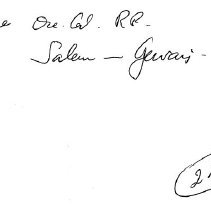 e Ore. Cal. R.R.
Salem — Gervais.
2